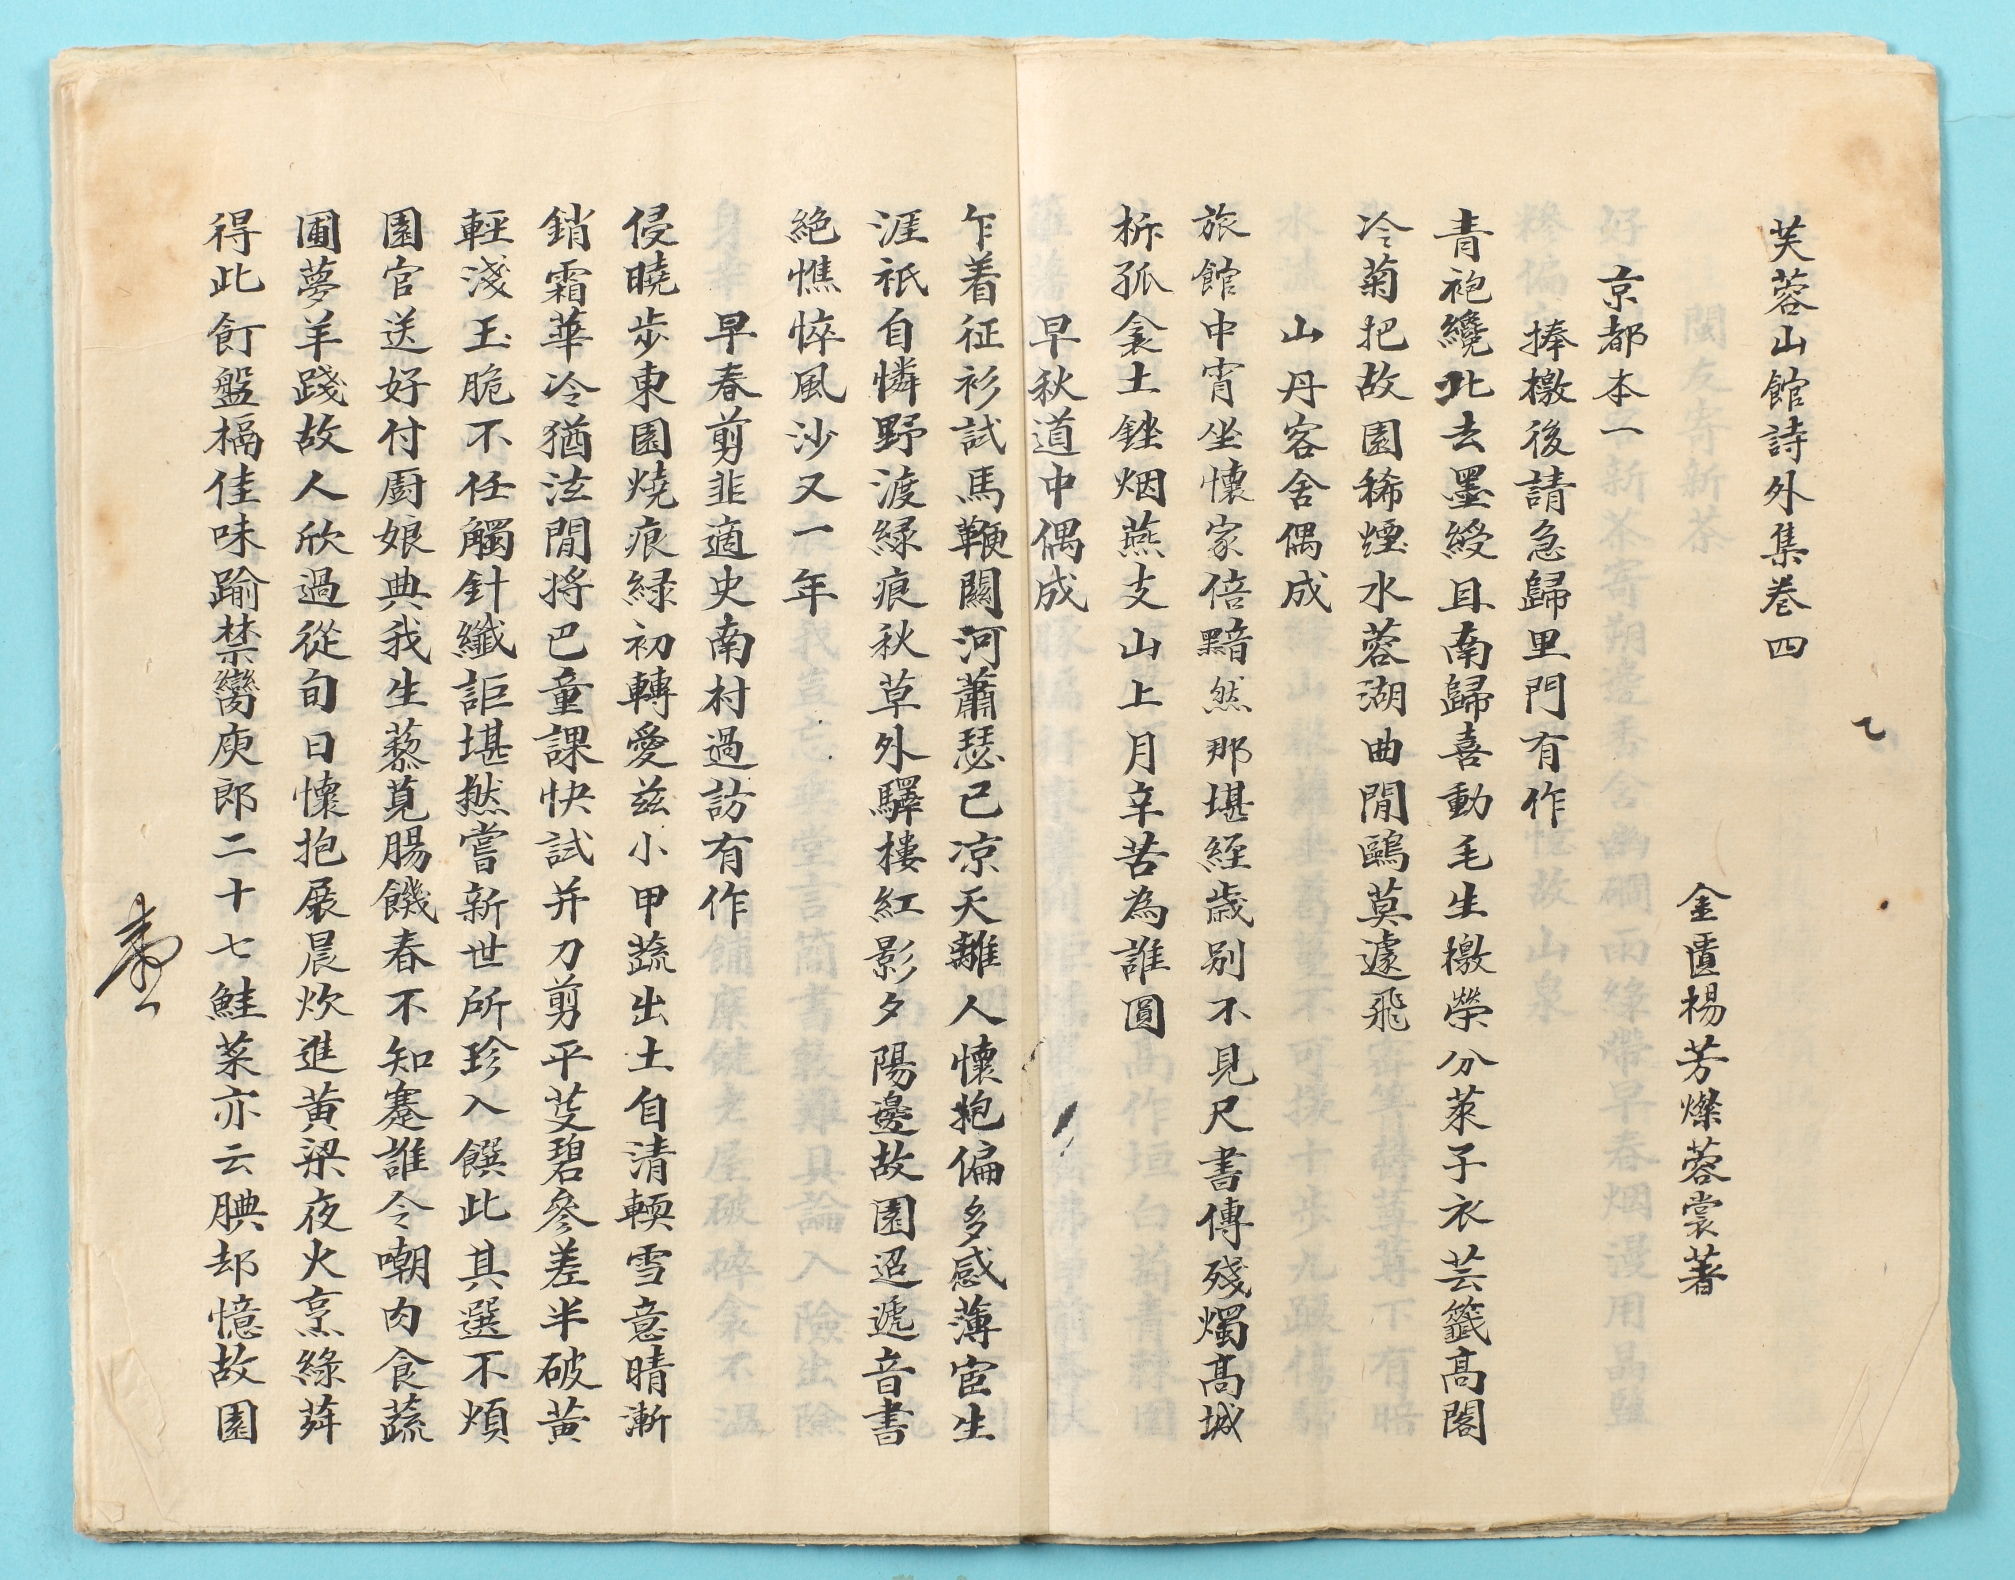 芙蓉山館詩外集卷四
金匱楊芳燦蓉裳著
京都本一
捧檄後請急歸里門有作
青袍纔北去墨綬且南歸喜動毛生檄榮分萊子衣芸籤高閣
冷菊把故園稀煙水蓉湖曲閒鷗莫遽飛
山丹客舍偶成
旅館中宵坐懷家倍黯然那堪經歲別不見尺書傳殘燭高城
柝孤衾土銼烟燕支山上月辛苦為誰圓
早秋道中偶成
乍着征衫試馬鞭關河蕭瑟已凉天離人懷抱偏多感薄宦生
涯祇自憐野渡緑痕秋草外驛樓紅影夕陽邊故園迢遞音書
絶憔悴風沙又一年
早春剪韭適史南村過訪有作
侵曉步東園燒痕緑初轉愛兹小甲蔬出土自清輭雪意晴漸
銷霜華冷猶泫閒將巴童課快試并刀剪平芟碧參差半破黄
輕淺玉脆不任觸針纖詎堪撚嘗新世所珍入饌此其選不煩
園官送好付厨娘典我生藜莧腸饑春不知蹇誰令嘲肉食蔬
圃夢羊踐故人欣過從旬日懷抱展晨炊進黄粱夜火烹緑荈
得此飣盤槅佳味踰禁臠庾郎二十七鮭菜亦云腆却憶故園